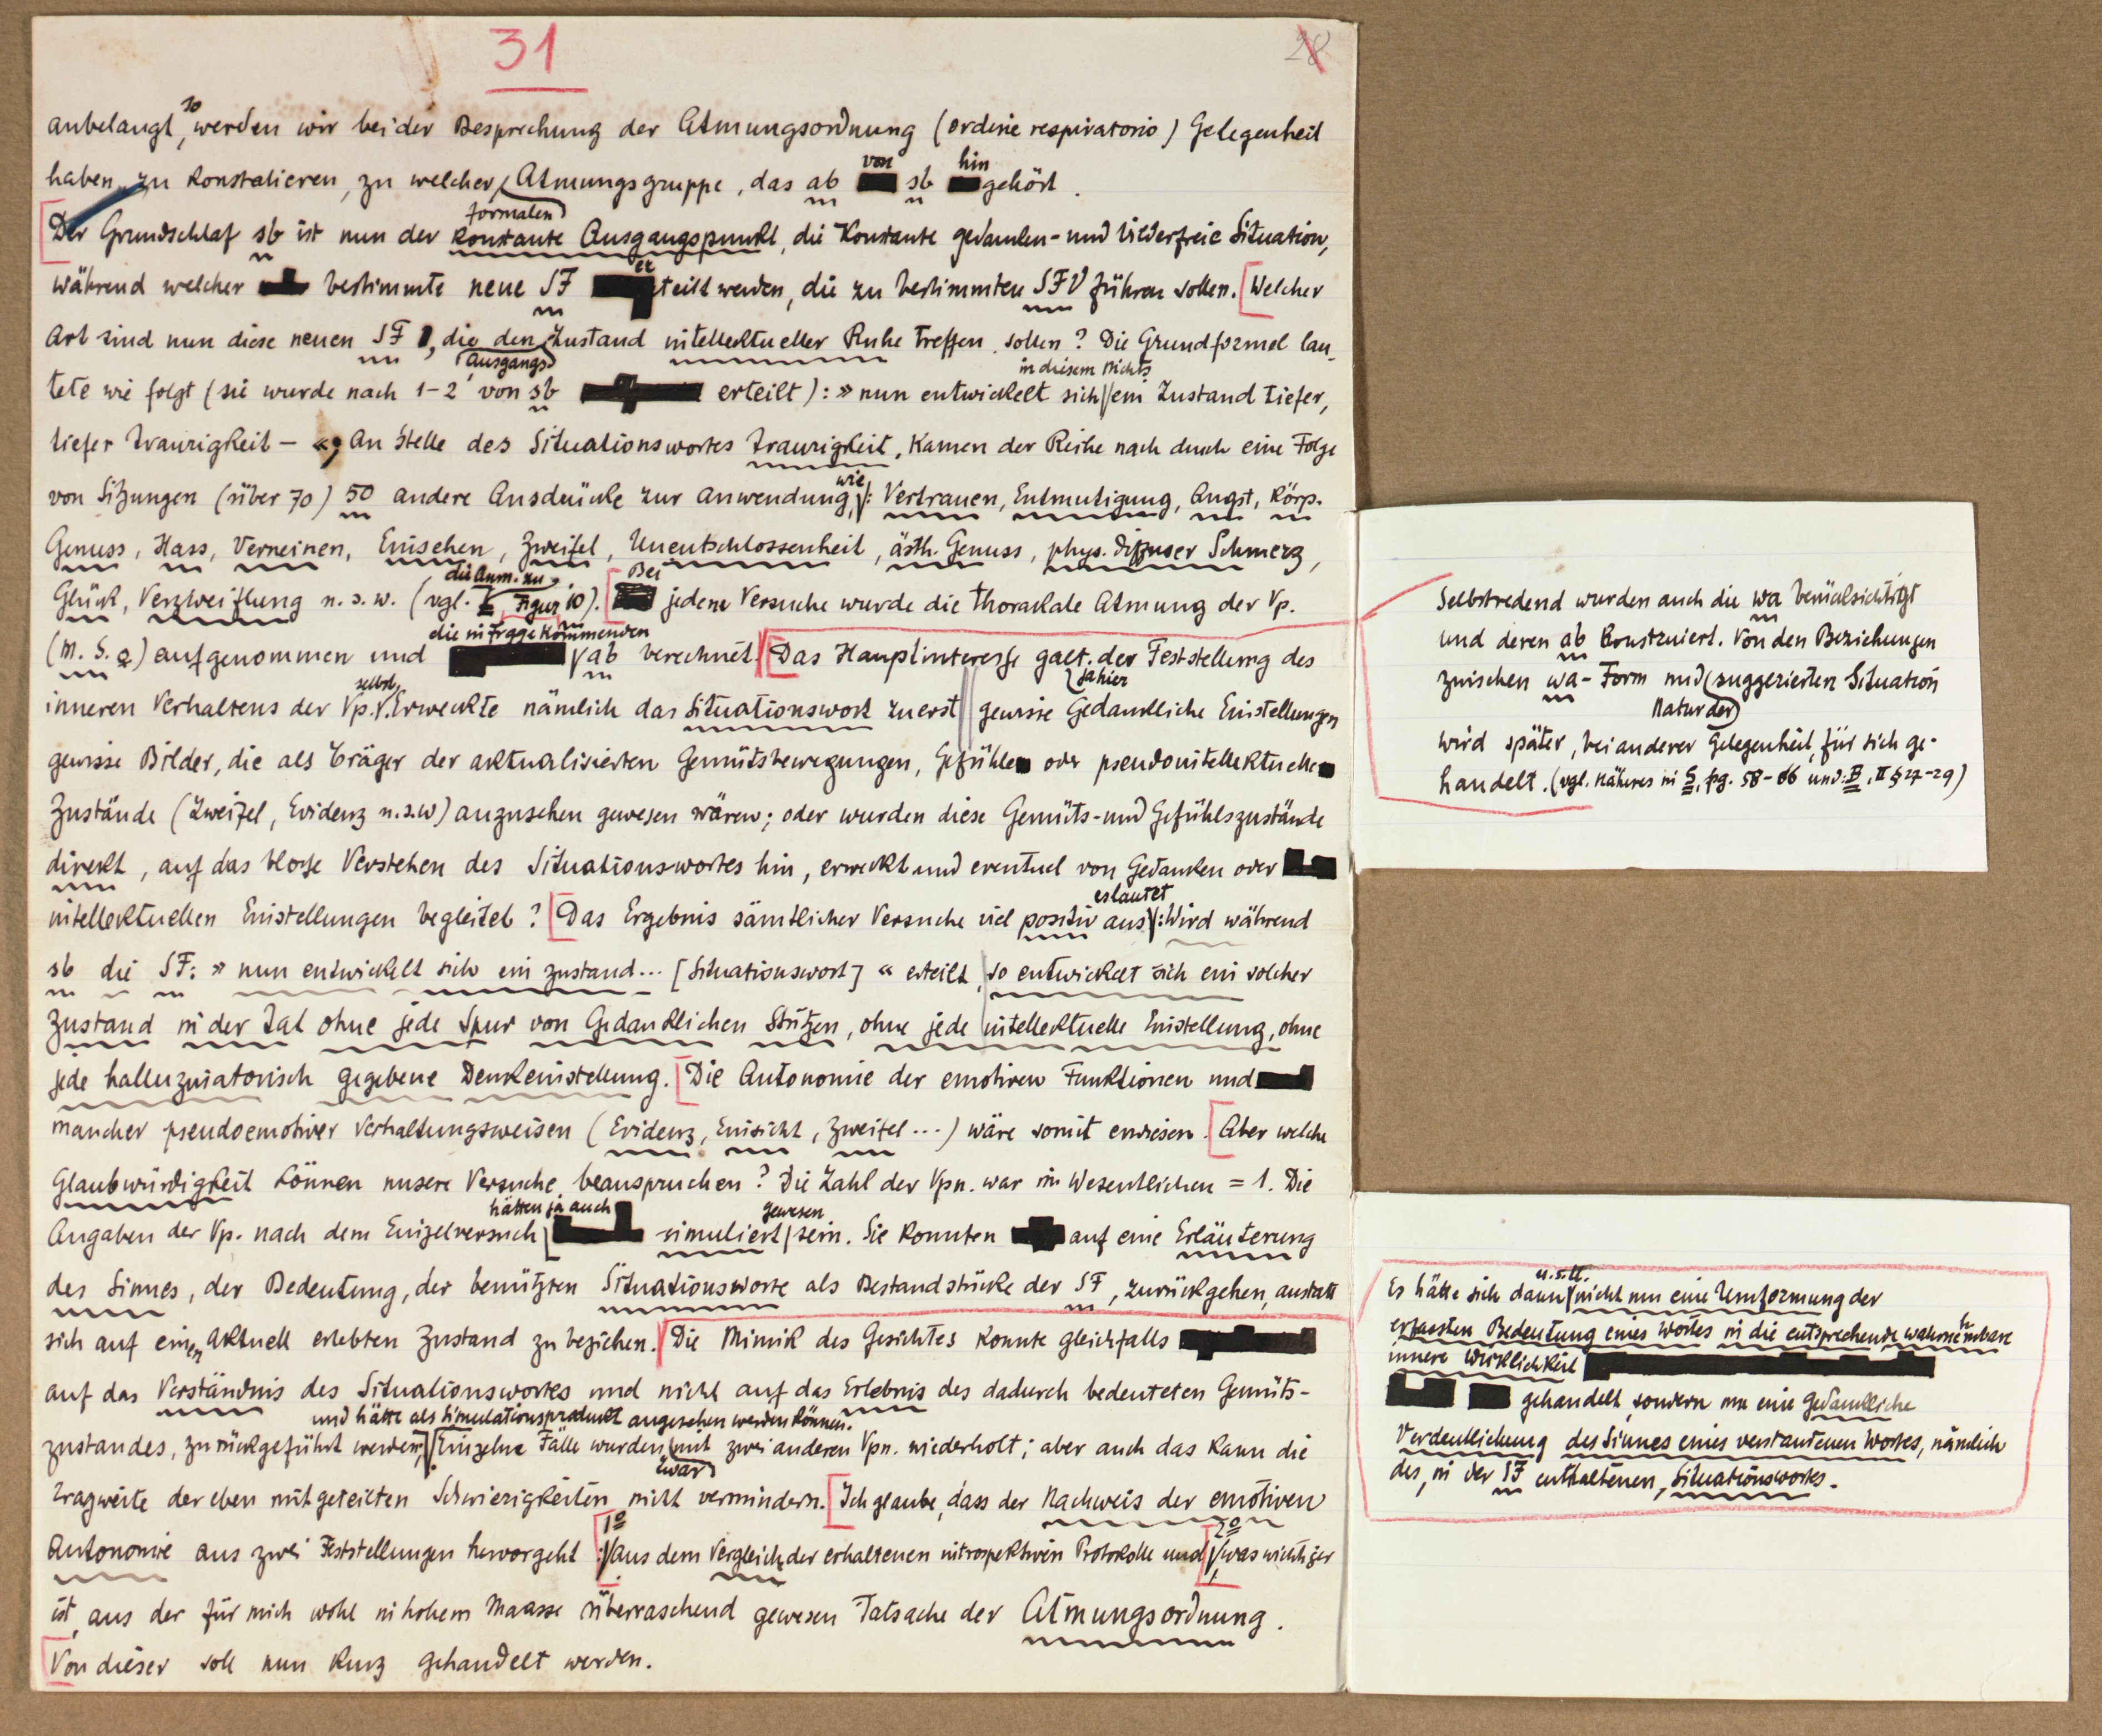 31
28
anbelangt, so werden wir bei der Besprechung der Atmungsordnung (ordine respiratorio) Gelegenheit
haben, zu konstatieren, zu welcher Atmungsgruppe, das ab von sb hin gehört.
Der Grundschlaf sb ist nun der formalen konstante Ausgangspunkt, die konstante gedanken- und bilderfreie Situation,
während welcher bestimmte neue SF erteilt werden, die zu bestimmten SFV führen sollen. Welcher
Art sind nun diese neuen SF, die den Ausgangs Zustand intellektueller Ruhe treffen sollen? Die Grundformel lau-
tete wie folgt (sie wurde nach 1-2' von sb erteilt): »nun entwickelt sich in diesem Nichts ein Zustand tiefer,
tiefer Traurigkeit — «; An Stelle des Situationswortes Traurigkeit, kamen der Reihe nach durch eine Folge
von Sitzungen (über 70) 50 andere Ausdrücke zur Anwendung, wie: Vertrauen, Entmutigung, Angst, körp.
Genuss, Hass, Verneinen, Einsehen, Zweifel, Unentschlossenheit, ästh. Genuss, phys. diffuser Schmerz,
Glück, Verzweiflung u. s. w. (vgl. die Anm. zu Figur 10). Bei jedem Versuche wurde die thorakale Atmung der Vp.
(M. S. ♀) aufgenommen und die in Frage kommenden ab berechnet. Das Hauptinteresse galt der Feststellung des
inneren Verhaltens der Vp. selbst. Erweckte nämlich das Situationswort zuerst jahier gewisse gedankliche Einstellungen
gewisse Bilder, die als Träger der aktualisierten Gemütsbewegungen, Gefühle oder pseudointellektuelle
Zustände (Zweifel, Evidenz u.s.w) anzusehen gewesen wären; oder wurden diese Gemüts- und Gefühlszustände
direkt, auf das blosse Verstehen des Situationswortes hin, erweckt und eventuel von Gedanken oder
intellektuellen Einstellungen begleitet? Das Ergebnis sämtlicher Versuche viel positiv aus; es lautet: Wird während
sb die SF: »nun entwickelt sich ein Zustand... [Situationswort] « erteilt, so entwickelt sich ein solcher
Zustand in der Tat ohne jede Spur von Gedanklichen Stützen, ohne jede intellektuelle Einstellung, ohne
jede halluzinatorisch gegebene Denkeinstellung. Die Autonomie der emotiven Funktionen und
mancher pseudoemotiver Verhaltungsweisen (Evidenz, Einsicht, Zweifel...) wäre somit erwiesen. Aber welche
Glaubwürdigkeit können unsere Versuche beanspruchen? Die Zahl der Vpn. war im Wesentlichen = 1. Die
Angaben der Vp. nach dem Einzelversuch hätten ja auch simuliert gewesen sein. Sie konnten auf eine Erläuterung
des Sinnes, der Bedeutung, der benützten Situationsworte als Bestandstücke der SF, zurückgehen, anstatt
sich auf einen aktuell erlebten Zustand zu beziehen. Die Mimik des Gesichtes konnte gleichfalls
auf das Verständnis des Situationswortes und nicht auf das Erlebnis des dadurch bedeuteten Gemüts-
zustandes, zurückgeführt werden, und hätte als Simulationsprodukt angesehen werden können. Einzelne Fälle wurden zwar mit zwei anderen Vpn. wiederholt; aber auch das kann die
Tragweite der eben mitgeteilten Schwierigkeiten nicht vermindern. Ich glaube, dass der Nachweis der emotiven
Autonomie aus zwei Feststellungen hervorgeht: 1º aus dem Vergleich der erhaltenen introspektiven Protokolle und 2º, was wichtiger
ist, aus der für mich wohl in hohem Maasse überraschend gewesen Tatsache der Atmungsordnung.
Von dieser soll nun kurz gehandelt werden.
Selbstredend wurden auch die wa berücksichtigt
und deren ab konstruiert. Von den Beziehungen
zwischen wa-Form und Natur der suggerierten Situation
wird später, bei anderer Gelegenheit, für sich ge-
handelt. (vgl. Näheres in S, pg. 58-66 und: E, II § 27-29)
Es hätte sich dann u.s.U. nicht um eine Umformung der
erfassten Bedeutung eines Wortes in die entsprechende wahrnehmbare
innere Wirklichkeit
gehandelt, sondern um eine gedankliche
Verdeutlichung des Sinnes eines verstandenen Wortes, nämlich
des, in der SF enthaltenen, Situationswortes.